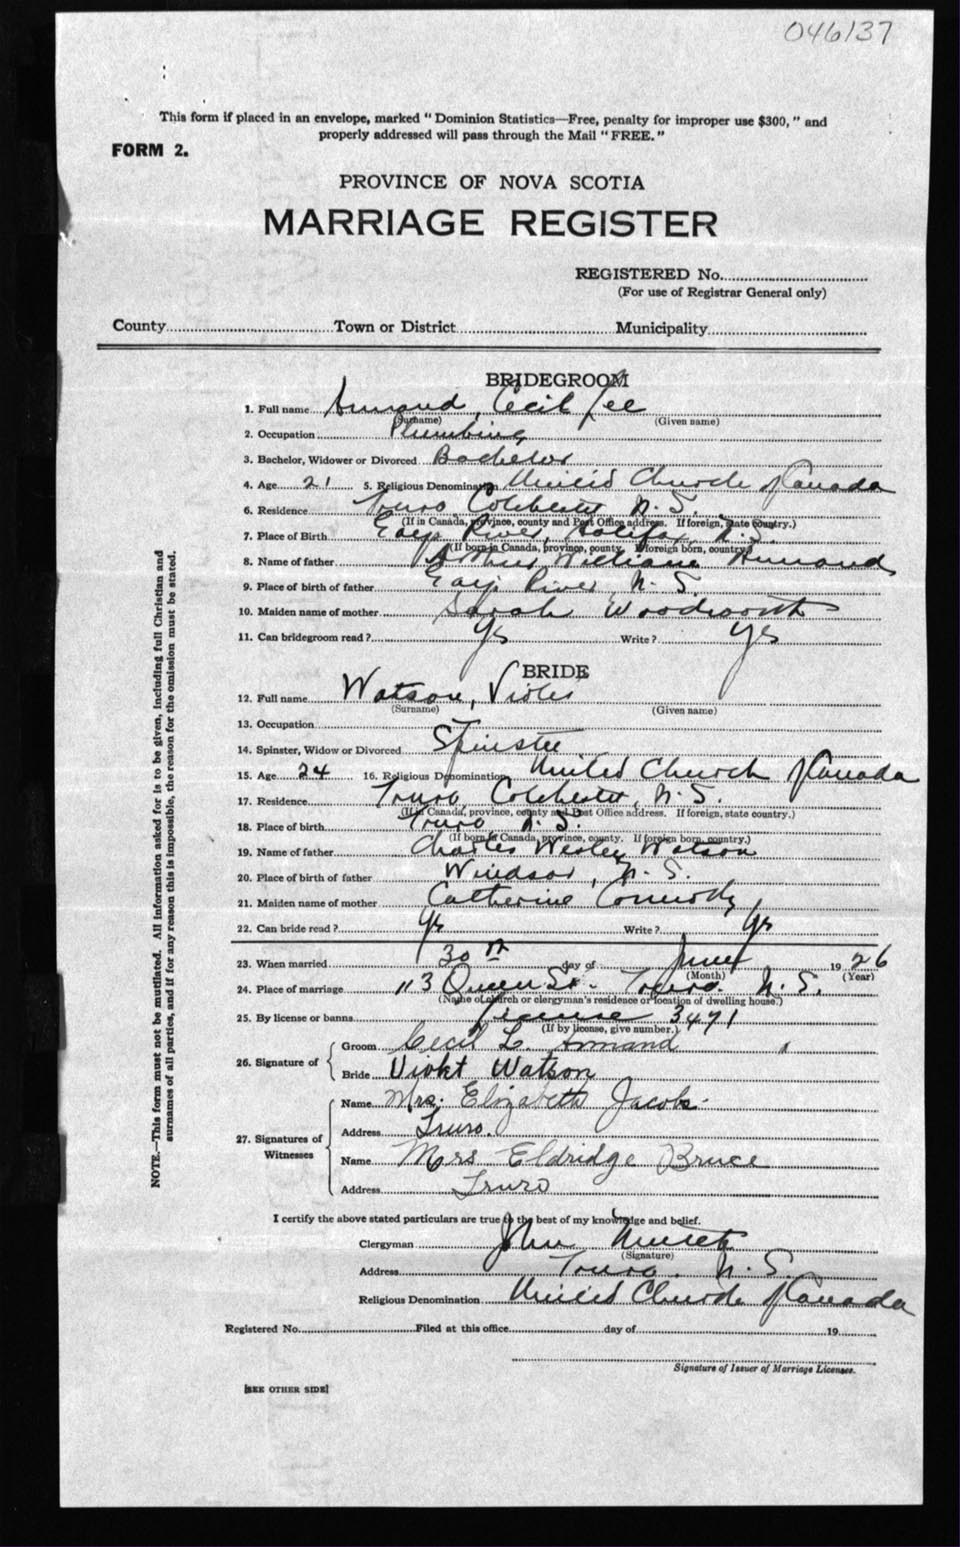 046137
This form if placed in an envelope, marked "Dominion Statistics—Free, penalty for improper use $300," and
properly addressed will pass through the Mail "FREE."
FORM 2.
PROVINCE OF NOVA SCOTIA
MARRIAGE REGISTER
REGISTERED No.
(For use of Registrar General only)
County Town or District Municipality
BRIDEGROOM
1. Full name Annand, Cecil Lee
(Surname) (Given name)
2. Occupation Plumbing
3. Bachelor, Widower or Divorced Bachelor
4. Age 21 5. Religious Denomination United Church of Canada
6. Residence Truro Colchester N.S.
(If in Canada, province, county and Post Office address. If foreign, state country.)
7. Place of Birth River, Halifax, N.S.
(If born in Canada, province, county. If foreign born, country.)
8. Name of father Arthur William Annand
9. Place of birth of father River N.S.
10. Maiden name of mother Sarah Woodworth
11. Can bridegroom read? Yes Write? Yes
BRIDE
12. Full name Watson, Violet
(Surname) (Given name)
13. Occupation
14. Spinster, Widow or Divorced Spinster
15. Age 24 16. Religious Denomination United Church of Canada
17. Residence Truro, Colchester, N.S.
(If in Canada, province, county and Post Office address. If foreign, state country.)
18. Place of birth Truro N.S.
(If born in Canada, province, county. If foreign born, country.)
19. Name of father Charles Wesley Watson
20. Place of birth of father Windsor, N.S.
21. Maiden name of mother Catherine
22. Can bride read? Yes Write? Yes
23. When married 30th day of June 1926
(Month) (Year)
24. Place of marriage 113 Queen St. Truro. N.S.
(Name of church or clergyman's residence or location of dwelling house.)
25. By license or banns license 3471
(If by license, give number.)
26. Signature of
Groom Cecil L. Annand
Bride Violet Watson
27. Signatures of Witnesses
Name Mrs. Elizabeth Jacobs.
Address Truro.
Name Mrs Eldridge Bruce
Address Truro
I certify the above stated particulars are true to the best of my knowledge and belief.
Clergyman John
(Signature)
Address Truro. N.S.
Religious Denomination United Church of Canada
Registered No. Filed at this office day of 19
Signature of Issuer of Marriage Licenses.
[SEE OTHER SIDE]
NOTE.—This form must not be mutilated. All information asked for is to be given, including full Christian and
surnames of all parties, and if for any reason this is impossible, the reason for the omission must be stated.